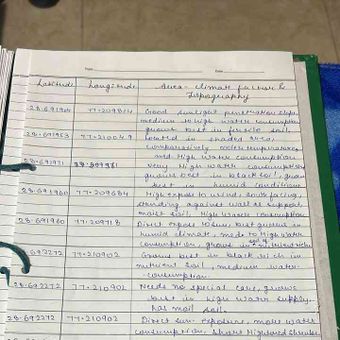 Page
Date
Latitude Longitude Area - climate factor &
Topography
28.691964 77.209814 Good sunlight penetration slope,
medium to high water consumption
grows best in fertile soil.
28.691963 77.210049 located in shaded area,
comparatively cooler temperatures
and High water consumption
28.691971 very High water consumption
grows best in black soil, grows
best in humid conditions
28.691960 77.209684 High expose to wind south facing,
standing against wall as support,
moist soil. High water consumption
28.691960 77.209718 Direct expose to sun best grows in
humid climate, mod to High water
consumption, grows in nutrient rich
28.692272 77.210902 Grows best in black rich in
nutrient soil, medium water
consumption.
28.692272 77.210902 Needs no special care, grows
best in high water supply,
has moist soil.
28.692272 77.210902 Direct sun exposure, more water
consumption, short High and shrubs